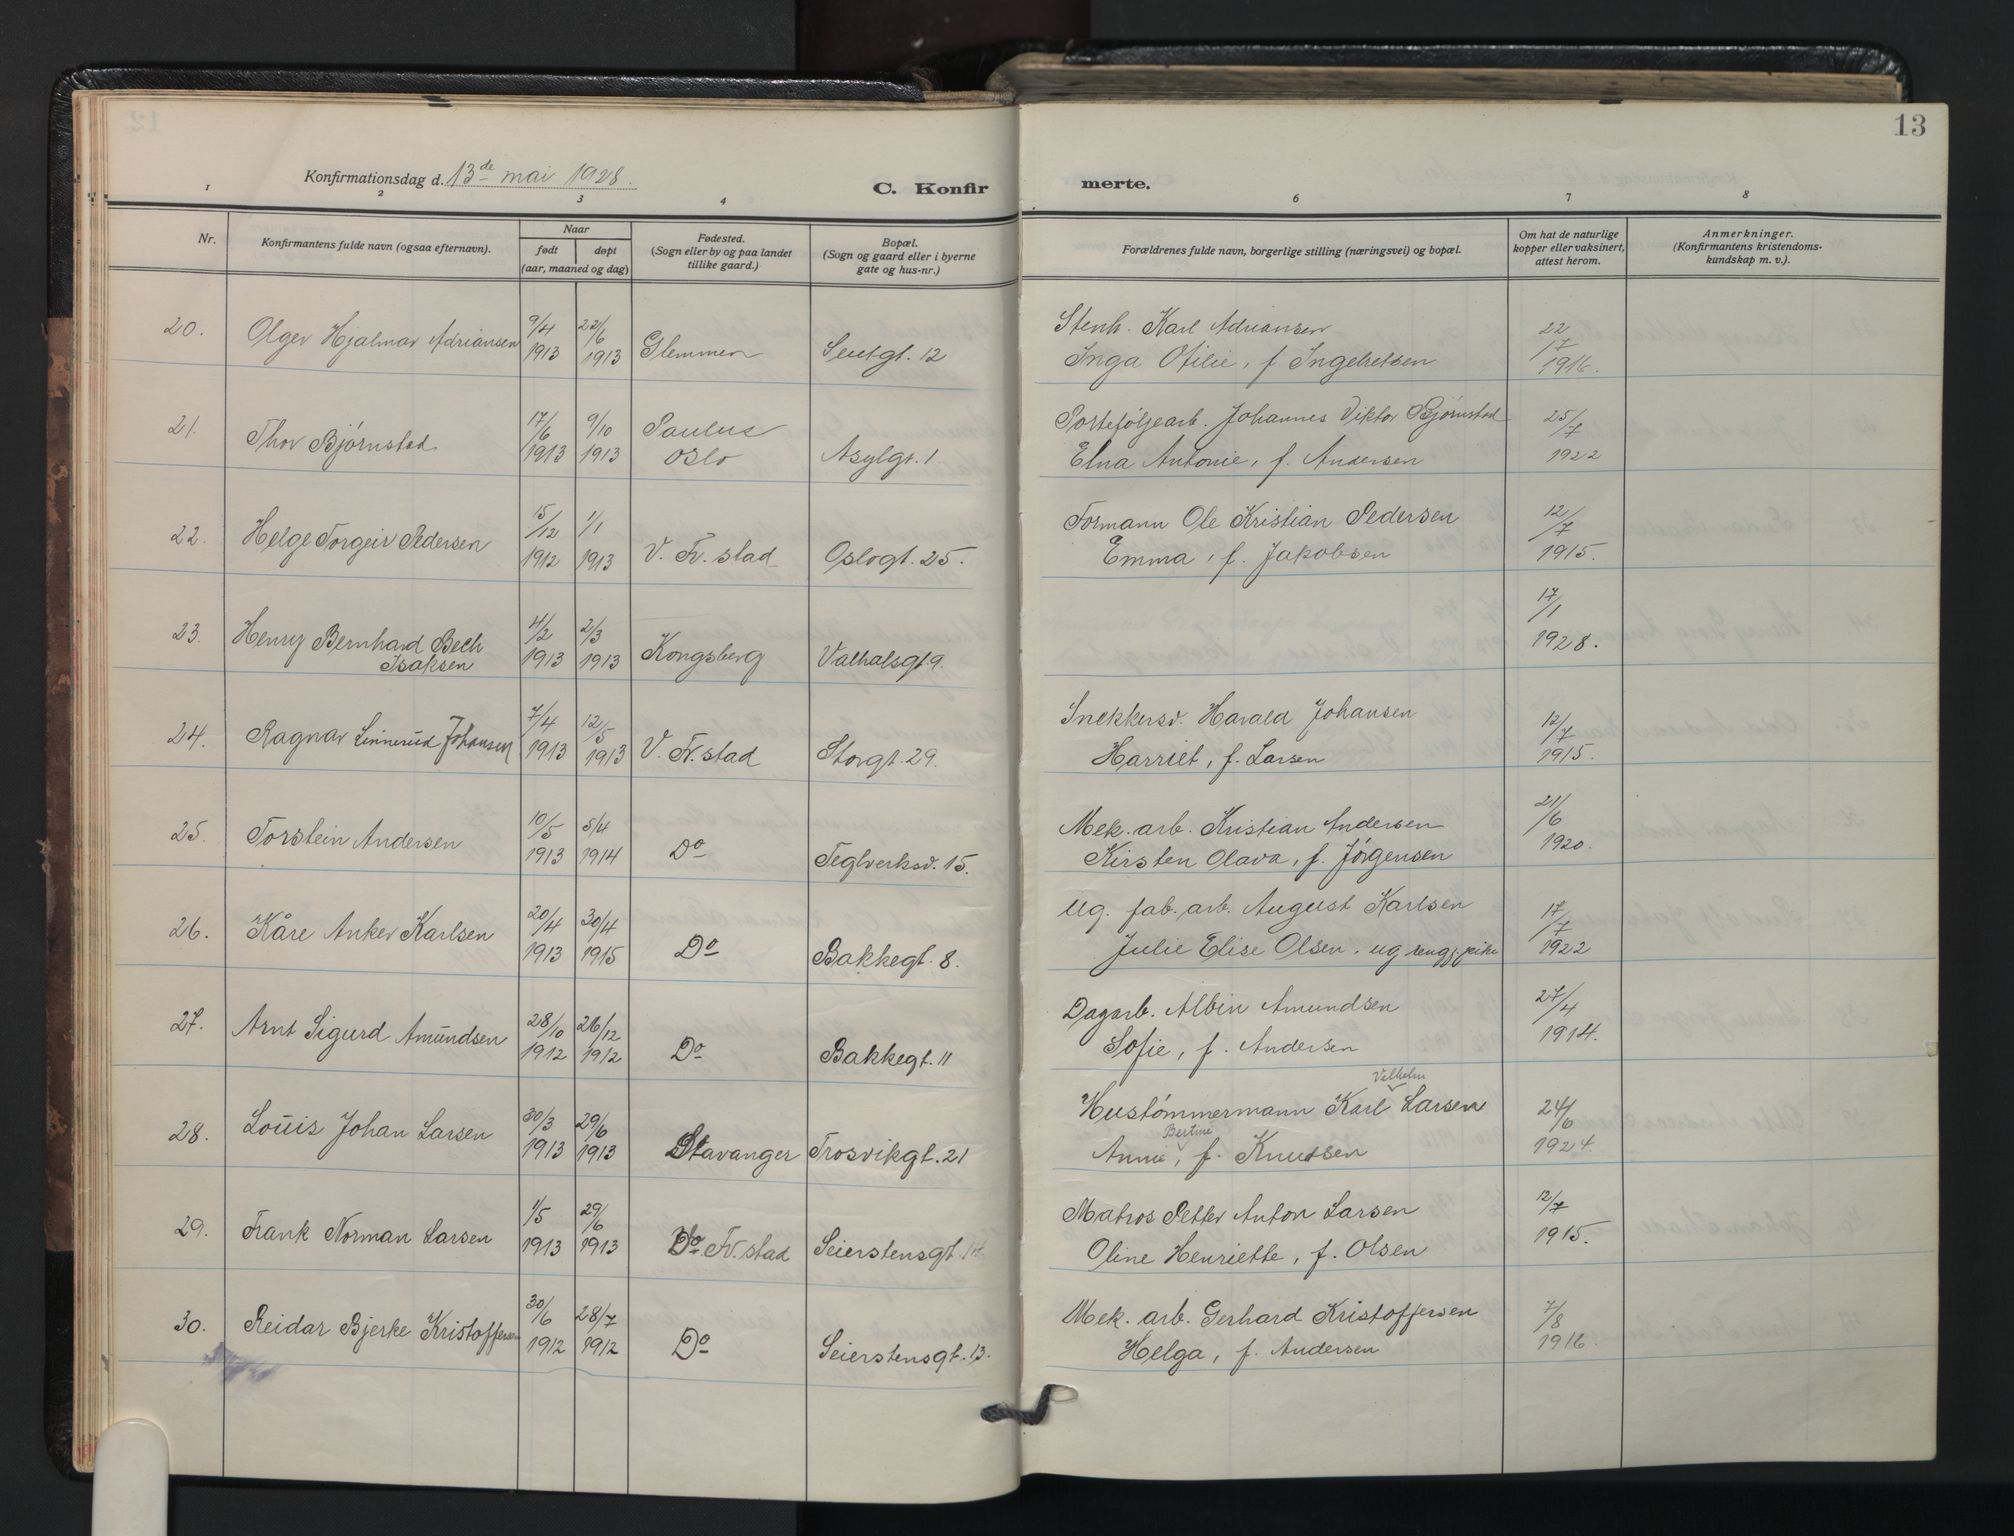 13
Konfirmationsdag d. 13de mai 1928.
C. Konfirmerte.
1 2 3 4 6 7 8
Nr.
Konfirmantens fulde navn (ogsaa efternavn).
Naar
født døpt
(aar, maaned og dag)
Fødested.
(Sogn eller by og paa landet
tillike gaard.)
Bopæl.
(Sogn og gaard eller i byerne
gate og hus-nr.)
Forældrenes fulde navn, borgerlige stilling (næringsvei) og bopæl.
Om hat de naturlige
kopper eller vaksinert,
attest herom.
Anmerkninger.
(Konfirmantens kristendoms-
kundskap m. v.).
20. Olger Hjalmar Adriansen 9/4 1913 22/6 1913 Glemmen 12
Stenh. Karl Adriansen 22/7 1916.
Inga Otilie, f. Ingebretsen
21. Thor Bjørnstad 17/6 1913 9/10 1913 Paulus Oslo Asylgt. 1
Porteføljearb. Johannes Viktor Bjørnstad 25/7 1922
Elna Antonie, f. Andersen
22. Helge Torgeir Pedersen 15/12 1912 1/1 1913 V. Fr. stad Oslogt. 25.
Formann Ole Kristian Pedersen 12/7 1915.
Emma, f. Jakobsen
23. Henry Bernhard Bech
Isaksen 4/2 1913 2/3 1913 Kongsberg Valhalsgt. 9. 17/1 1928.
24. Ragnar Linnerud Johansen 7/4 1913 12/5 1913 V. Fr. stad Storgt. 29.
Snekkersv. Harald Johansen 12/7 1915.
Harriet, f. Larsen
25. Torstein Andersen 10/5 1913 5/4 1914 Do Teglverksv. 15.
Mek. arb. Kristian Andersen 21/6 1920.
Kirsten Olava, f. Jørgensen
26. Kåre Anker Karlsen 20/4 1913 30/4 1915 Do Bakkegt. 8.
Ug. fab. arb. August Karlsen 17/7 1922
Julie Elise Olsen. ug rengj. pike
27. Arnt Sigurd Amundsen 28/10 1912 26/12 1912 Do Bakkegt. 11
Dagarb. Albin Amundsen 27/4 1914.
Sofie, f. Andersen
28. Louis Johan Larsen 30/3 1913 29/6 1913 Stavanger Trosvikgt. 21
Hustømmermann Karl Vilhelm Larsen 24/6 1924.
Annie Bertine, f. Knudsen
29. Frank Norman Larsen 1/5 1913 29/6 1913 V. Fr. stad Seierstensgt. 14.
Matros Petter Anton Larsen 12/7 1915.
Oline Henriette, f. Olsen
30. Reidar Bjerke Kristoffersen 30/6 1912 28/7 1912 Do Seierstensgt. 13.
Mek. arb. Gerhard Kristoffersen 7/8 1916.
Helga, f. Andersen